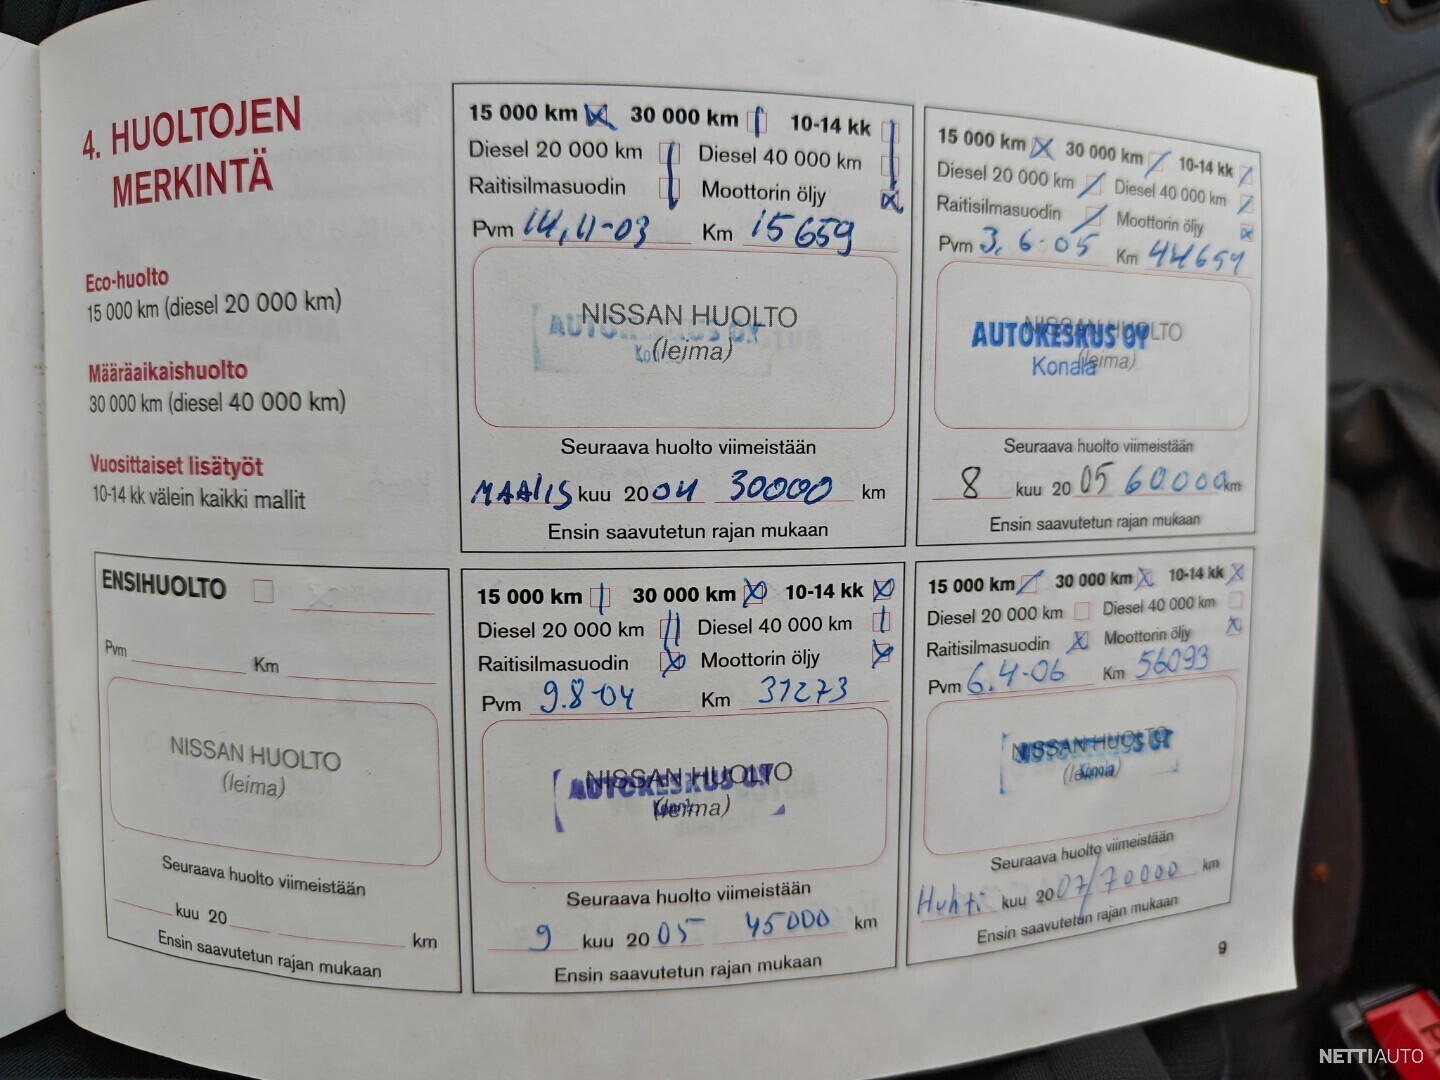 4. HUOLTOJEN
MERKINTÄ
Eco-huolto
15 000 km (diesel 20 000 km)
Määräaikaishuolto
30 000 km (diesel 40 000 km)
Vuosittaiset lisätyöt
10-14 kk välein kaikki mallit
15 000 km 30 000 km 10-14 kk
Diesel 20 000 km Diesel 40 000 km
Raitisilmasuodin Moottorin öljy
Pvm 14,11-03 Km 15659
NISSAN HUOLTO
AUTOKESKUS OY
(leima)
Seuraava huolto viimeistään
MAALIS kuu 2004 30000 km
Ensin saavutetun rajan mukaan
15 000 km 30 000 km 10-14 kk
Diesel 20 000 km Diesel 40 000 km
Raitisilmasuodin Moottorin öljy
Pvm 3.6-05 Km 44654
NISSAN HUOLTO
AUTOKESKUS OY
(leima)
Konala
Seuraava huolto viimeistään
8 kuu 20 05 60000 km
Ensin saavutetun rajan mukaan
ENSIHUOLTO
Pvm Km
NISSAN HUOLTO
(leima)
Seuraava huolto viimeistään
kuu 20 km
Ensin saavutetun rajan mukaan
15 000 km 30 000 km 10-14 kk
Diesel 20 000 km Diesel 40 000 km
Raitisilmasuodin Moottorin öljy
Pvm 9.8-04 Km 31273
NISSAN HUOLTO
AUTOKESKUS OY
(leima)
Seuraava huolto viimeistään
9 kuu 20 05 45000 km
Ensin saavutetun rajan mukaan
15 000 km 30 000 km 10-14 kk
Diesel 20 000 km Diesel 40 000 km
Raitisilmasuodin Moottorin öljy
Pvm 6.4-06 Km 56093
NISSAN HUOLTO
AUTOKESKUS OY
(leima)
Seuraava huolto viimeistään
Huhti kuu 2007/70000 km
Ensin saavutetun rajan mukaan
9
NETTIAUTO